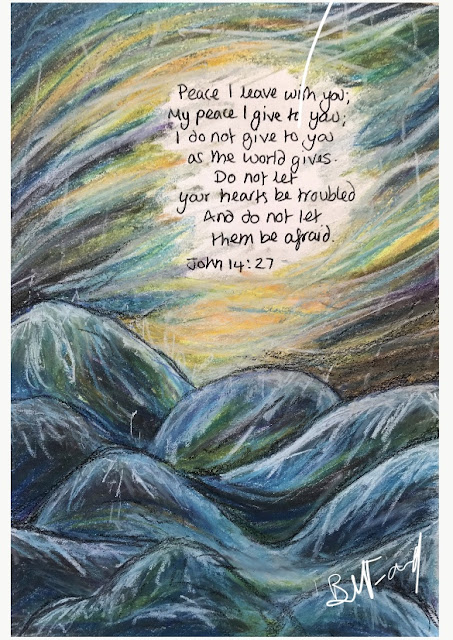 Peace I leave with you;
My peace I give to you;
I do not give to you
as the world gives.
Do not let
your hearts be troubled
And do not let
them be afraid.
John 14:27